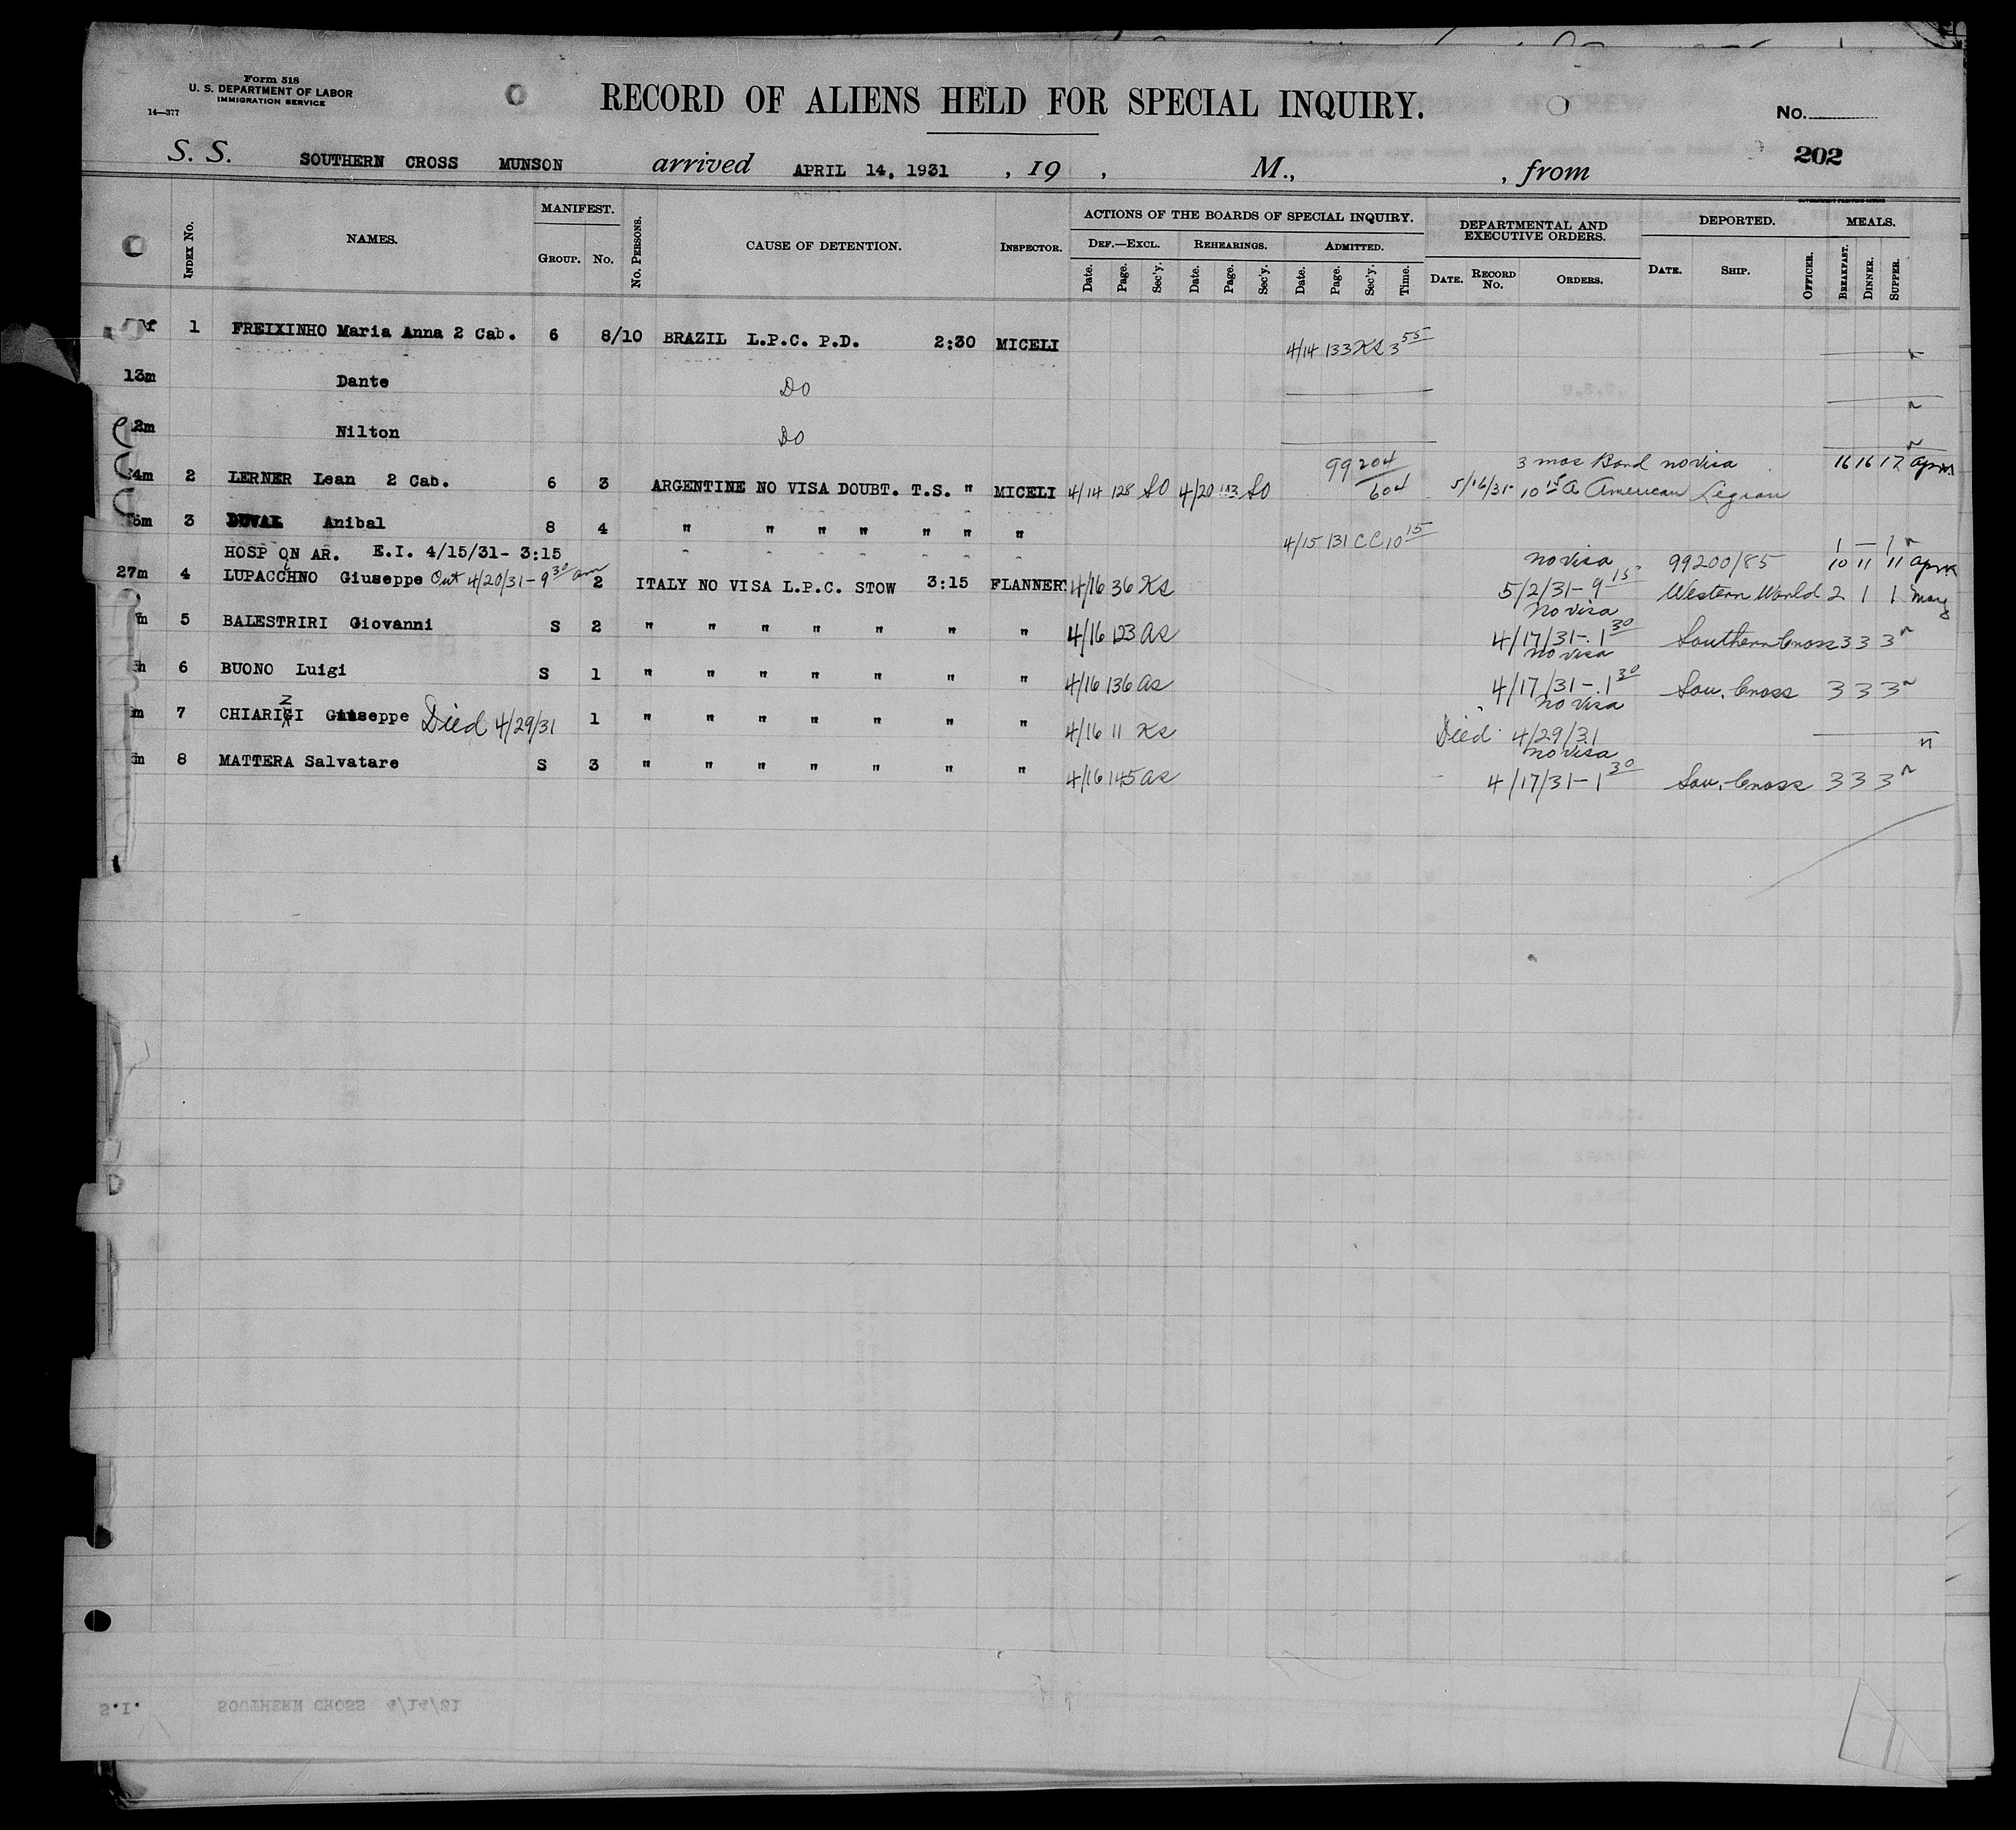 Form 518
U. S. DEPARTMENT OF LABOR
IMMIGRATION SERVICE
14—377
RECORD OF ALIENS HELD FOR SPECIAL INQUIRY.
No.
202
S. S. SOUTHERN CROSS MUNSON arrived APRIL 14, 1931 , 19 , M., , from
GOVERNMENT PRINTING OFFICE
INDEX No. NAMES. MANIFEST. GROUP. No. No. PERSONS. CAUSE OF DETENTION. INSPECTOR. ACTIONS OF THE BOARDS OF SPECIAL INQUIRY. DEPARTMENTAL AND EXECUTIVE ORDERS. DEPORTED. MEALS.
DEF.—EXCL. REHEARINGS. ADMITTED.
Date. Page. Sec'y. Date. Page. Sec'y. Date. Page. Sec'y. Time. DATE. RECORD No. ORDERS. DATE. SHIP. OFFICER. BREAKFAST. DINNER. SUPPER.
1 FREIXINHO Maria Anna 2 Cab. 6 8/10 BRAZIL L.P.C. P.D. 2:30 MICELI 4/14 133 KS 3 55 "
13m Dante Do "
2m Nilton Do "
99204/604 3 mos Bond no visa 16 16 17 Apr
4m 2 LERNER Lean 2 Cab. 6 3 ARGENTINE NO VISA DOUBT. T.S. " MICELI 4/14 128 SO 4/20 SO 5/16/31 10 15 a American Legion
3 DUVAL Anibal 8 4 " " " " " " " 4/15 131 CC 10 15 1 — 1 "
HOSP ON AR. E.I. 4/15/31- 3:15 no visa 99200/85 10 11 11 Apr
27m 4 LUPACCHNO Giuseppe Out 4/20/31-9 30 am 2 ITALY NO VISA L.P.C. STOW 3:15 FLANNER 4/16 36 KS 5/2/31-9 15 Western World 2 1 1 May
no visa
m 5 BALESTRIRI Giovanni S 2 " " " " " " " 4/16 123 as 4/17/31-1 30 Southern Cross 3 3 3 "
no visa
6 BUONO Luigi S 1 " " " " " " " 4/16 136 as 4/17/31-1 30 Sou. Cross 3 3 3 "
no visa
m 7 CHIARIZI Giuseppe Died 4/29/31 1 " " " " " " " 4/16 11 KS Died 4/29/31 "
no visa
8 MATTERA Salvatare S 3 " " " " " " " 4/16 145 as 4/17/31-1 30 Sou. Cross 3 3 3 "
S.I. SOUTHERN CROSS 4/14/31